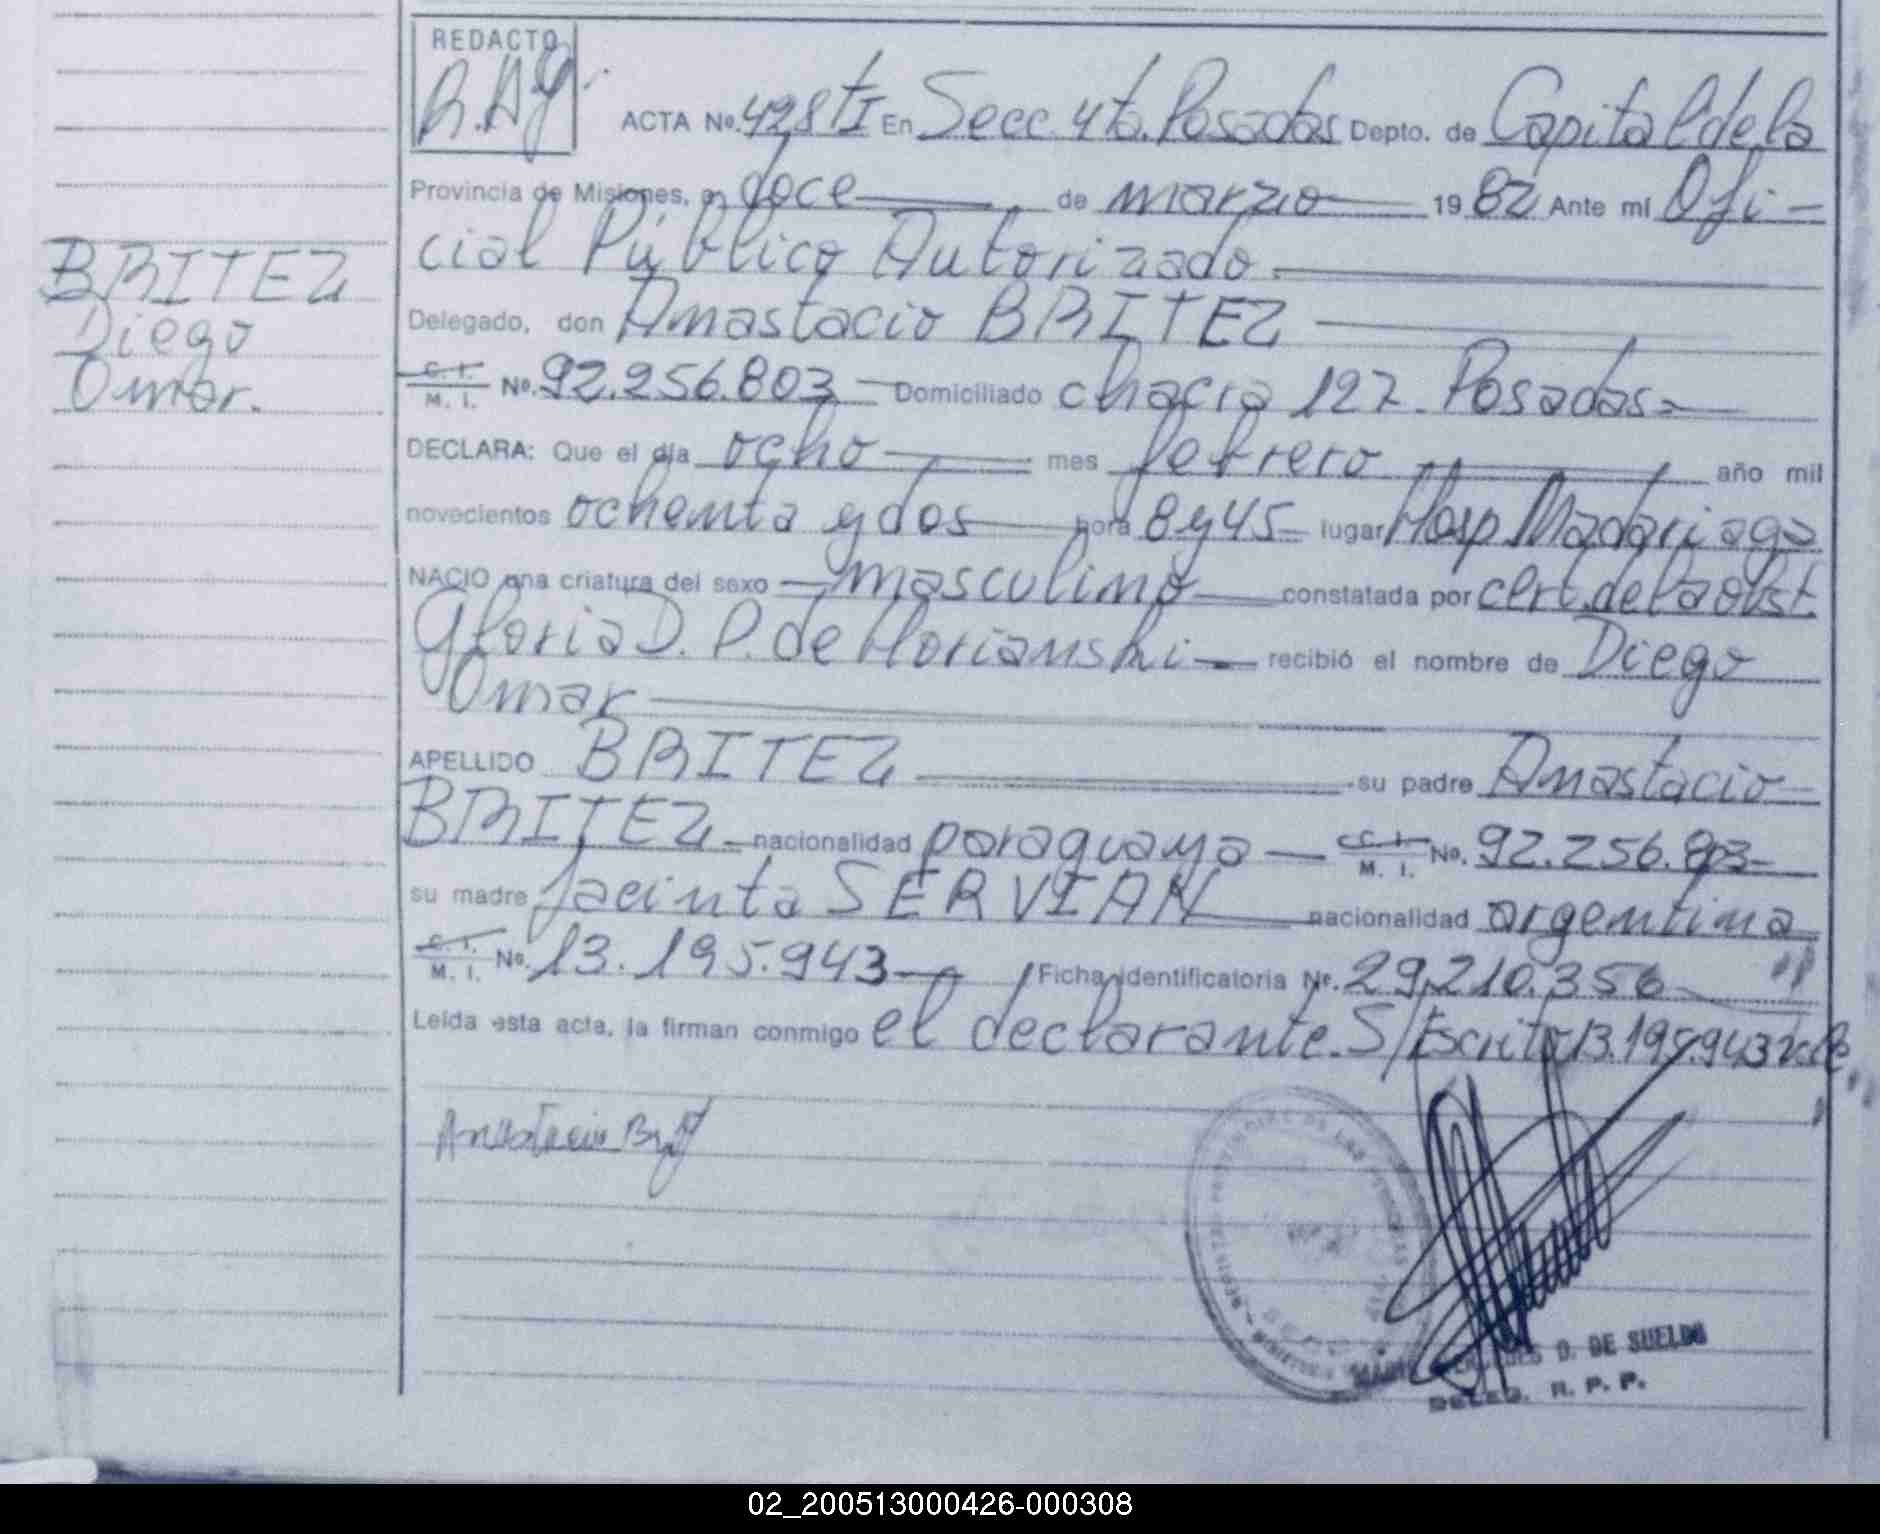 REDACTO
ACTA Nº. 428 tI En Secc. 4ta. Posadas Depto. de Capital de la
Provincia de Misiones, a doce de marzo 1982 Ante mí Ofi-
cial Público Autorizado.
Delegado, don Anastacio BRITEZ
C. I.
M. I. Nº. 92.256.803 Domiciliado chacra 127. Posadas
DECLARA: Que el día ocho mes febrero año mil
novecientos ochenta y dos hora 8 y 45 lugar Hosp Madariaga
NACIO una criatura del sexo masculino constatada por cert. de la obst.
Gloria D. P. de Horianski recibió el nombre de Diego
Omar
APELLIDO BRITEZ su padre Anastacio
BRITEZ nacionalidad paraguaya C. I.
M. I. Nº. 92.256.803
su madre Jacinta SERVIAN nacionalidad argentina
C. I.
M. I. Nº. 13.195.943 Ficha identificatoria Nº. 29.210.356
Leída esta acta, la firman conmigo el declarante. S/Escrito 13.195.943 vale
BRITEZ
Diego
Omar.
Anastacio
D. DE SUELDO
DELEG. R. P. P.
02_200513000426-000308